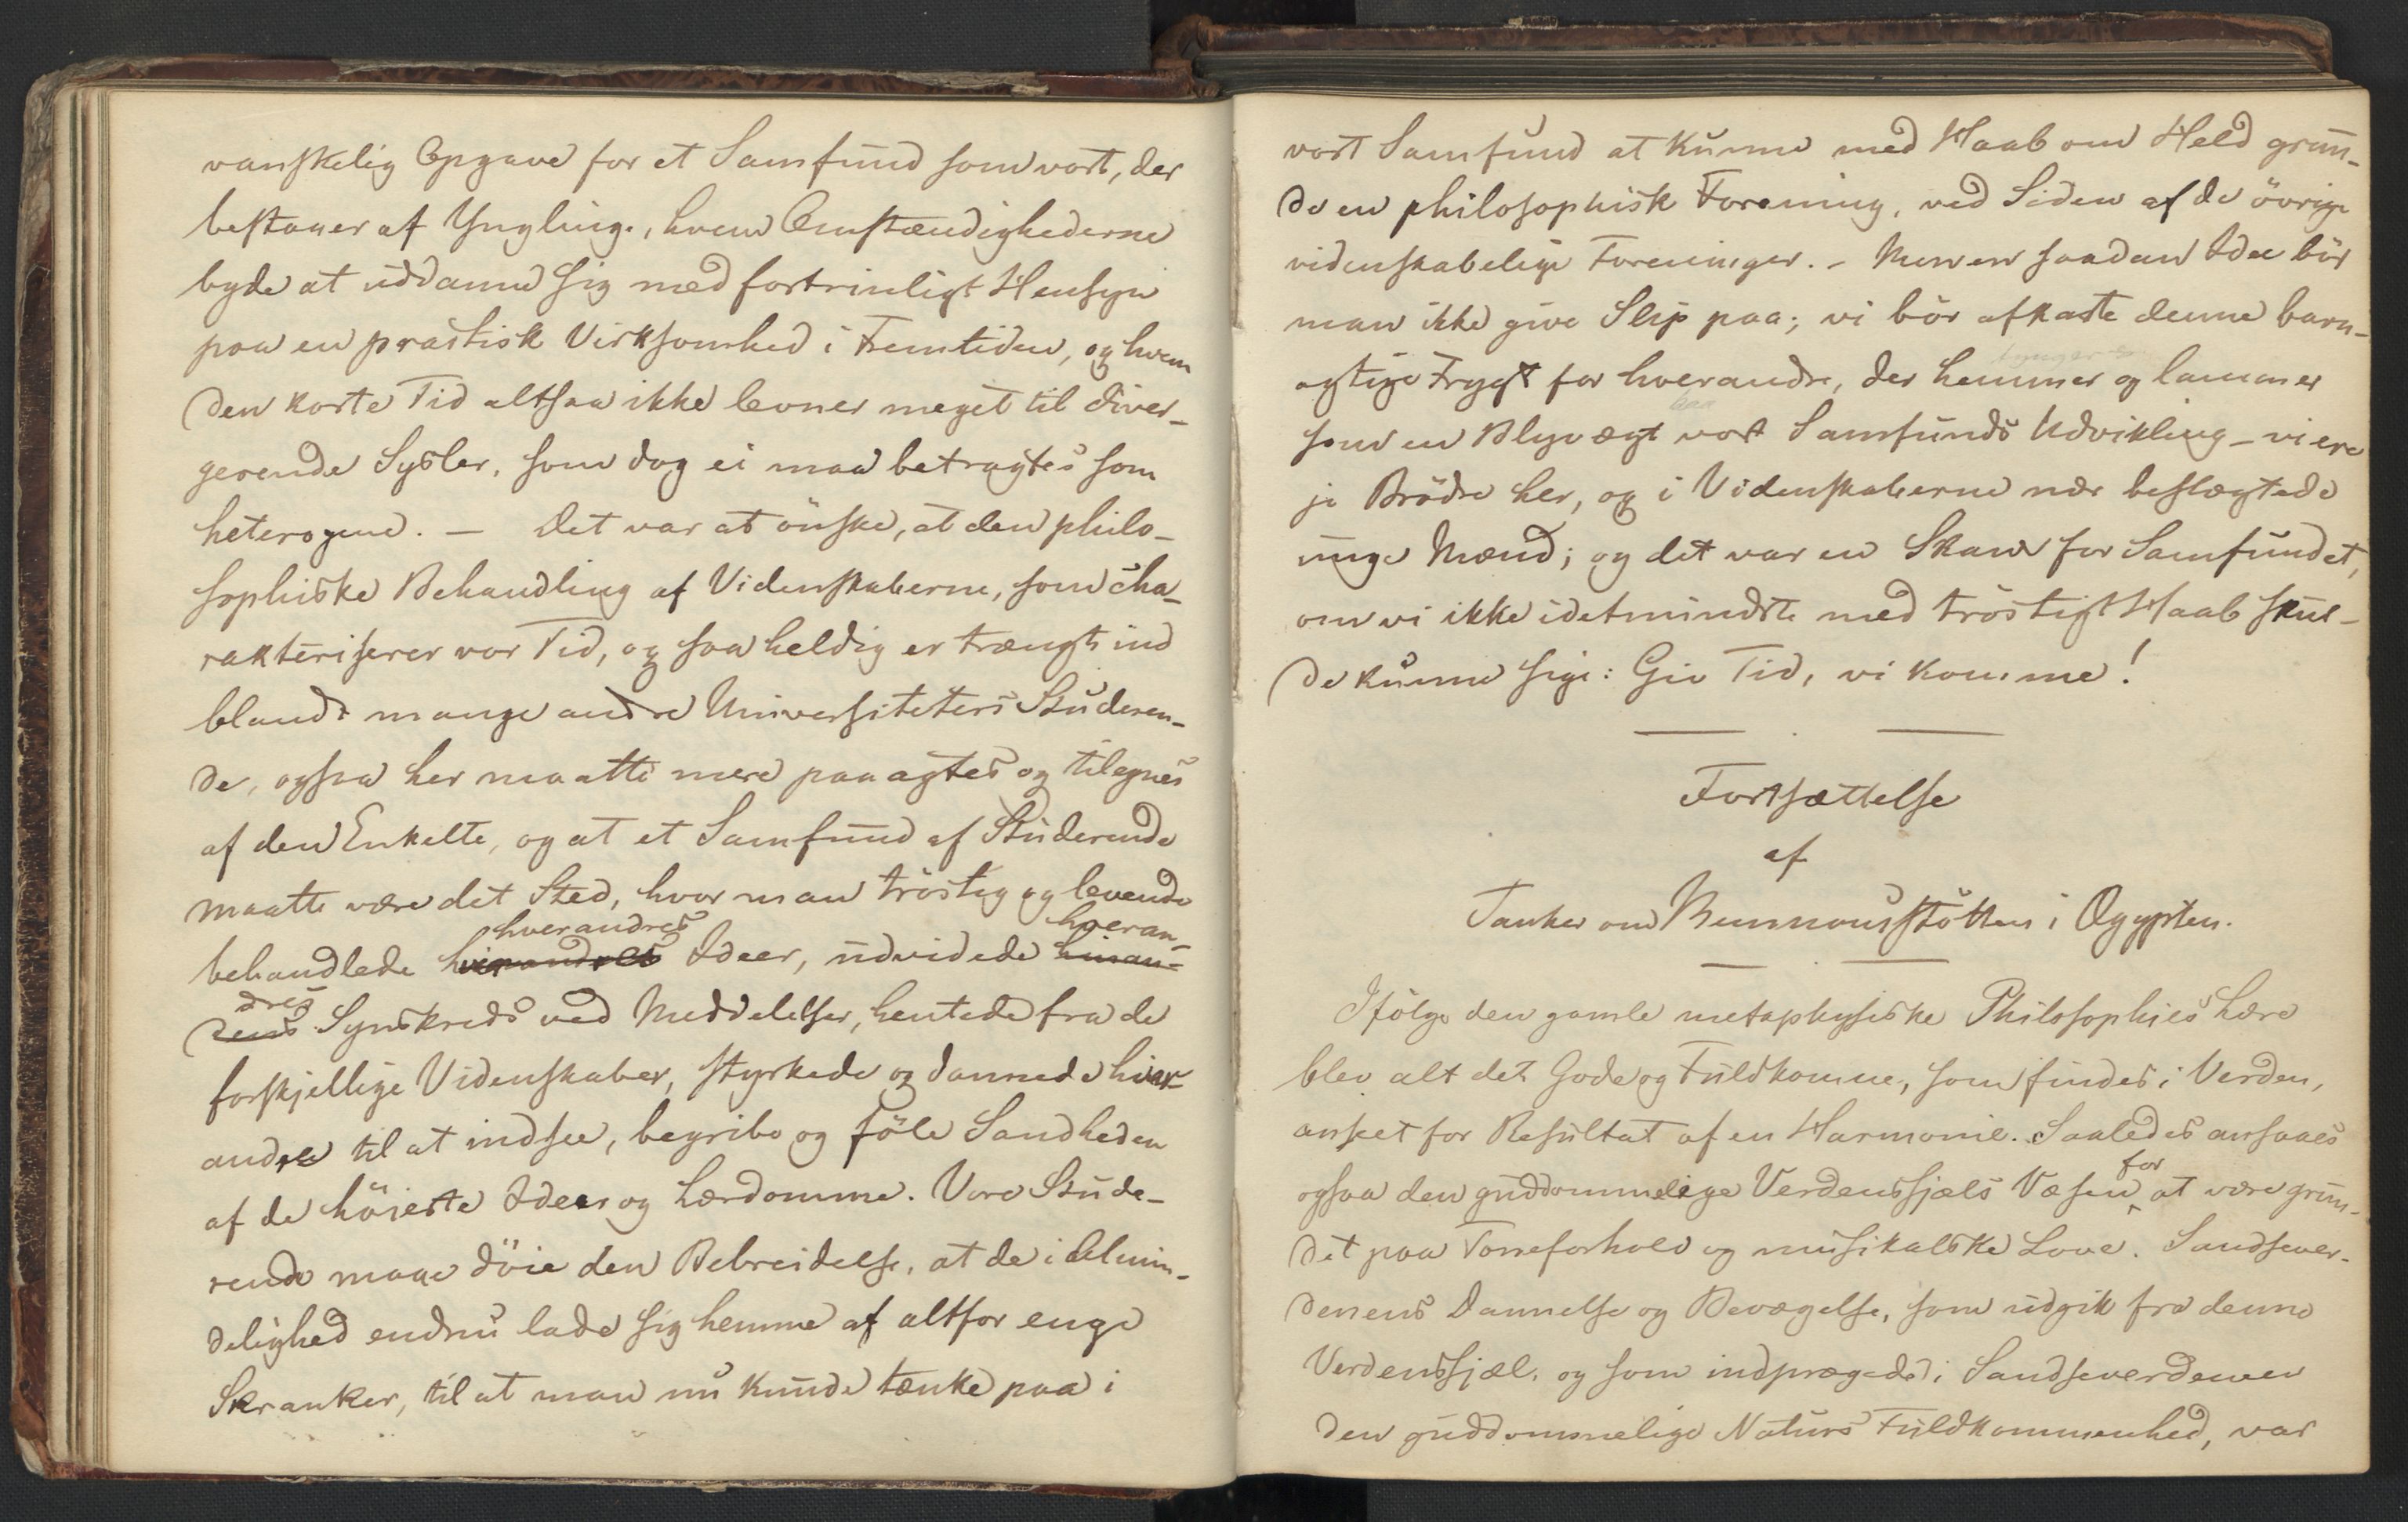 vanskelig Opgave for et Samfund som vort, der
bestaaer af Ynglinge, hvem Omstændighederne
byde at uddanne sig med fortrinligt Hensyn
paa en practisk Virksomhed i Fremtiden, og hvem
den korte Tid altsaa ikke levner meget til diver-
gerende Sysler, som dog ei maa betragtes som
heterogene. — Det var at önske, at den philo-
sophiske Behandling af Videnskaberne, som cha-
rakteriserer vor Tid, og saa heldig er trængt ind
blandt mange andre Universiteters Studeren-
de, ogsaa her maatte mere paaagtes og tilegnes
af den Enkelte, og at et Samfund af Studerende
maatte være det Sted, hvor man tröstig og levende
behandlede hverandres Ideer, udvidede hveran-
dres Synskreds ved Meddelelser, hentede fra de
forskjellige Videnskaber, styrkede og dannede hver-
andre til at indsee, begribe og föle Sandheden
af de höieste Ideer og Lærdomme. Vore Stude-
rende maae döie den Bebreidelse, at de i Almin-
delighed endnu lade sig hemme af altfor enge
Skranker, til at man nu kunde tænke paa i
vort Samfund at kunne med Haab om Held grun-
de en philosophisk Forening, ved Siden af de övrige
videnskabelige Foreninger. – Men en saadan Idee bör
man ikke give Slip paa; vi bör afkaste denne barn-
agtige Frygt for hverandre, der hemmer og lammer
som en Blyvægt vort Samfunds Udvikling – vi ere
jo Brödre her, og i Videnskaberne nær beslægtede
unge Mænd; og det var en Skam for Samfundet,
om vi ikke idetmindste med tröstigt Haab skul-
de kunne sige: Giv Tid, vi komme!
Fortsættelse
af
Tanker om Memnonsstötten i Ægypten.
Ifölge den gamle metaphysiske Philosophies Lære
blev alt det Gode og Fuldkomne, som findes i Verden,
anseet for Resultat af en Harmonie. Saaledes ansaaes
ogsaa den guddommelige Verdenssjæls Væsen for at være grun-
det paa Toneforhold og musikalske Love. Sandsever-
denens Dannelse og Bevægelse, som udgik fra denne
Verdenssjæl, og som indprægede i Sandseverdenen
den guddommelige Naturs Fuldkommenhed, var